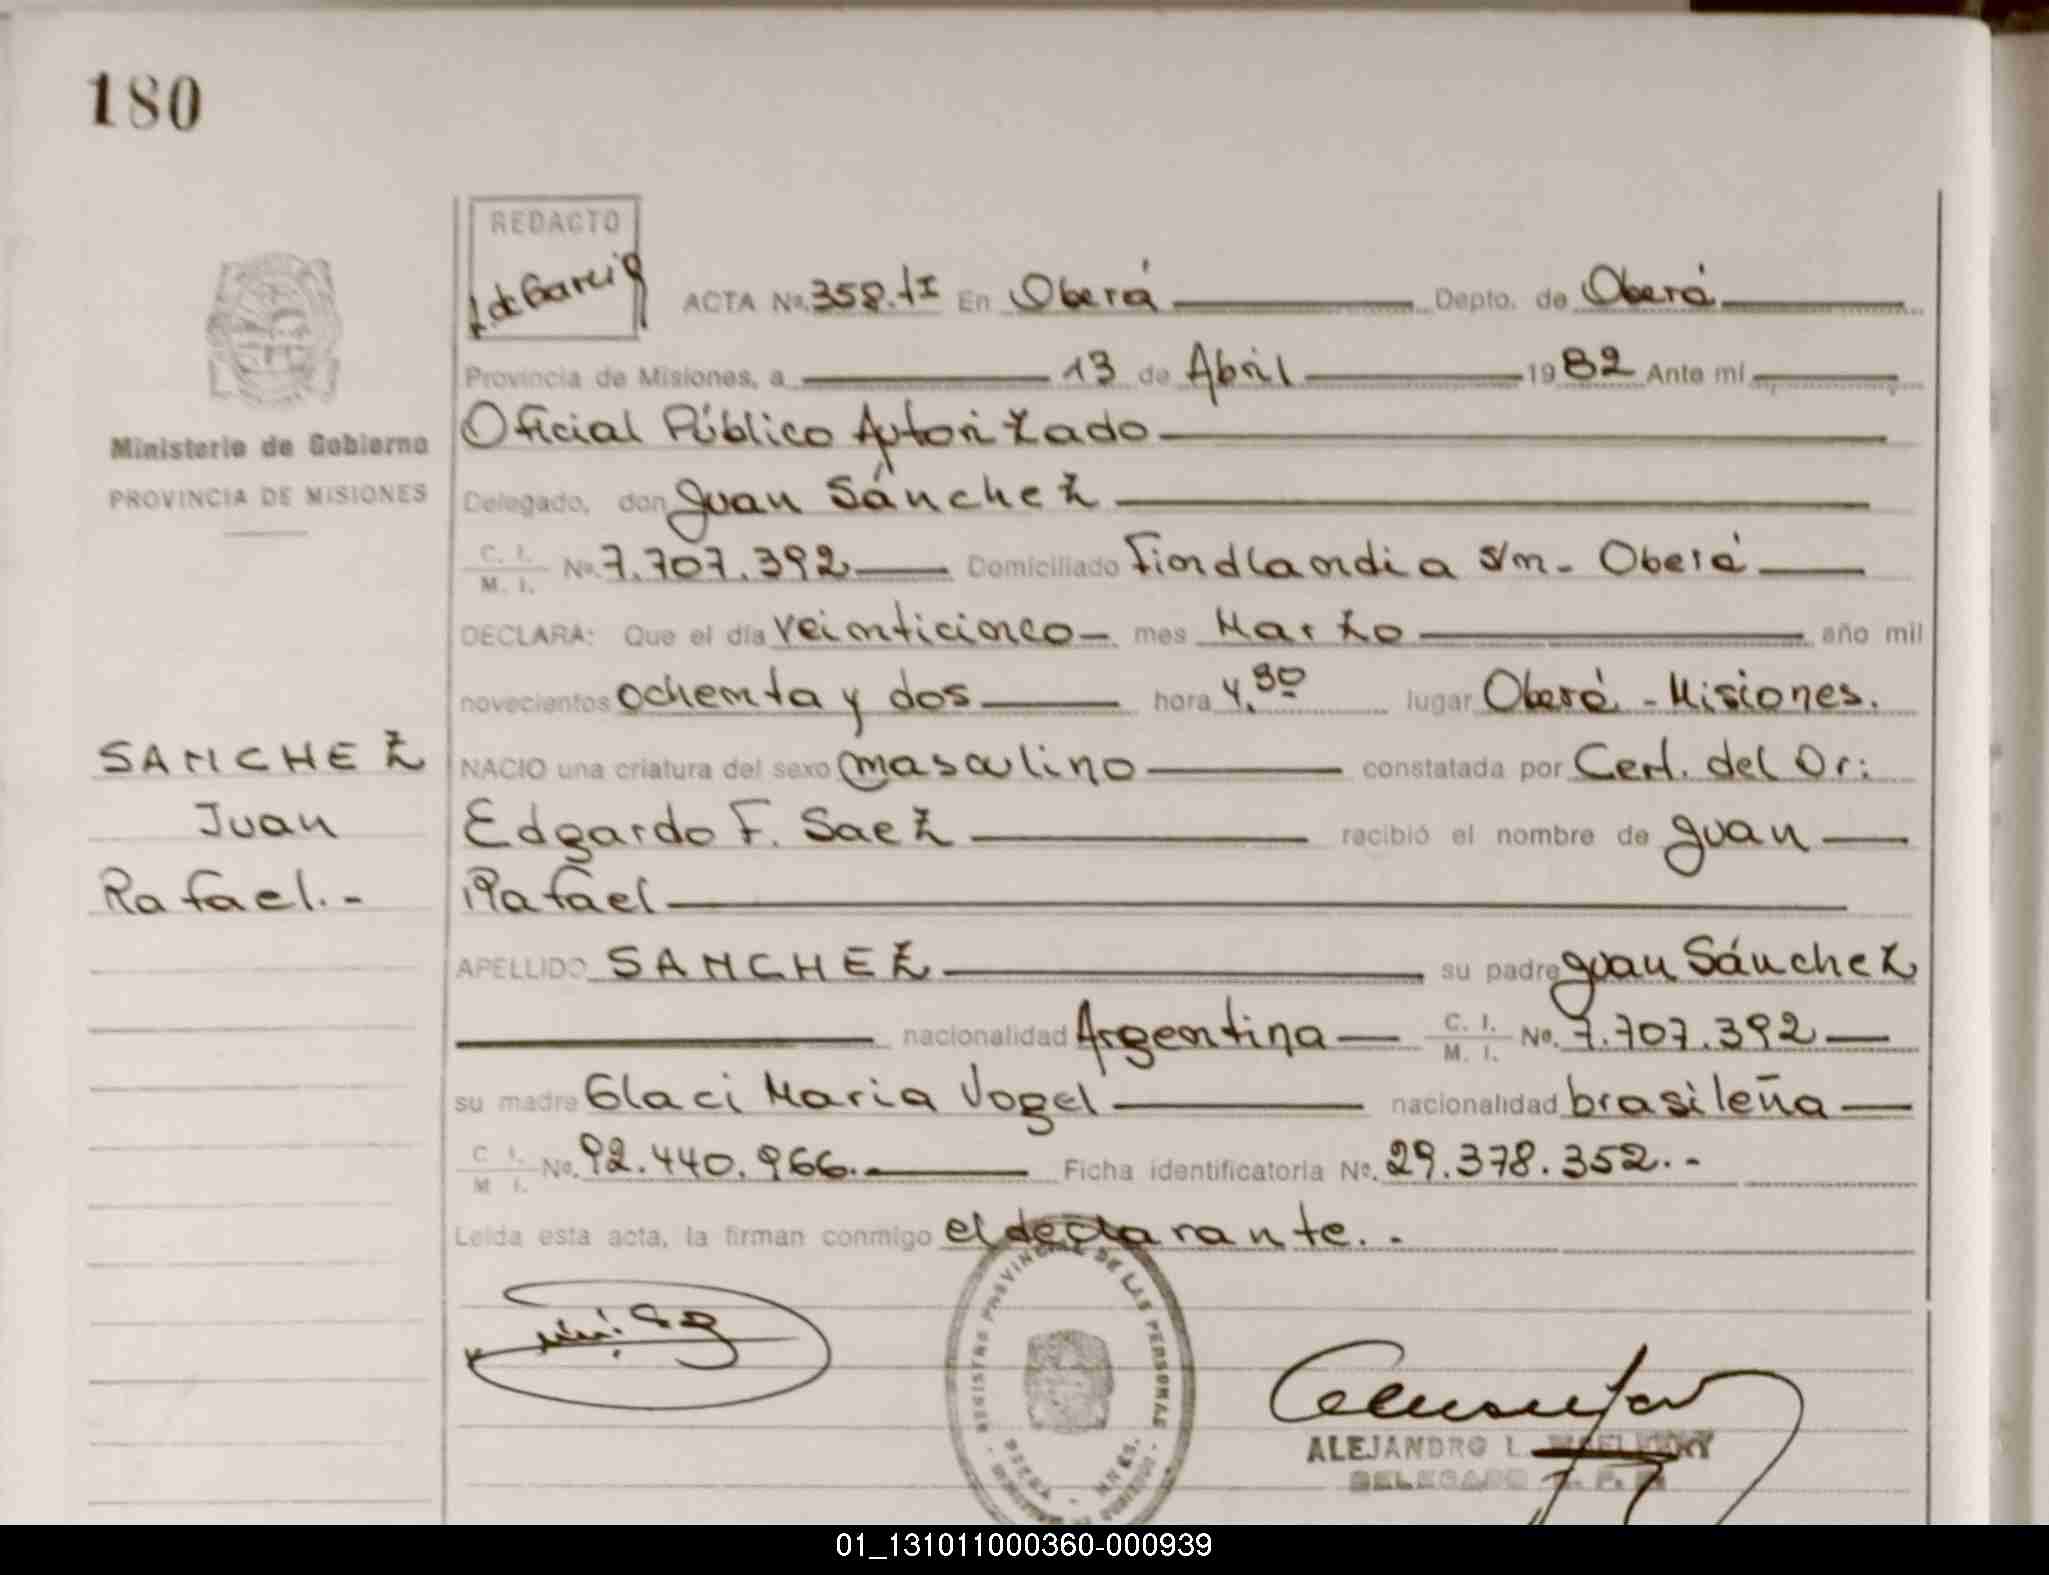 180
REDACTO
L. de Garcia
ACTA No. 358.tI En Oberá Depto. de Oberá
Provincia de Misiones, a 13 de Abril 1982 Ante mí
Oficial Público Autorizado
Delegado, don Juan Sánchez
C. I. M. I. No. 7.707.392 Domiciliado Findlandia s/n - Oberá
DECLARA: Que el día veinticinco - mes Marzo año mil
novecientos ochenta y dos hora 4.30 lugar Oberá - Misiones.
NACIO una criatura del sexo masculino constatada por Cert. del Dr:
Edgardo F. Saez recibió el nombre de Juan
Rafael
APELLIDO SANCHEZ su padre Juan Sánchez
nacionalidad Argentina C. I. M. I. No. 7.707.392
su madre Glaci Maria Vogel nacionalidad brasileña
C. I. M. I. No. 92.440.966. Ficha identificatoria No. 29.378.352. -
Leída esta acta, la firman conmigo el declarante. -
Ministerio de Gobierno
PROVINCIA DE MISIONES
SANCHEZ
Juan
Rafael. -
REGISTRO PROVINCIAL DE LAS PERSONAS
ALEJANDRO L.
DELEGADO
01_131011000360-000939